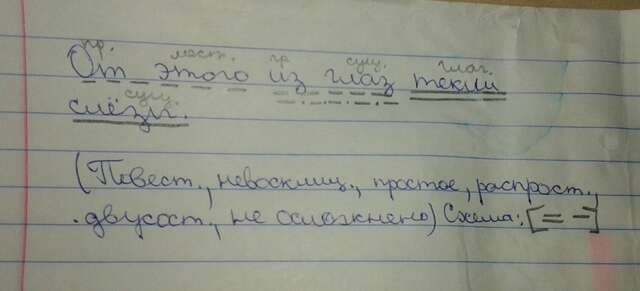 пр. мест. пр. сущ. глаг.
От этого из глаз текли
сущ.
слёзы.
(Повест., невосклиц., простое, распрост.,
двусост., не осложнено) Схема: [= -]